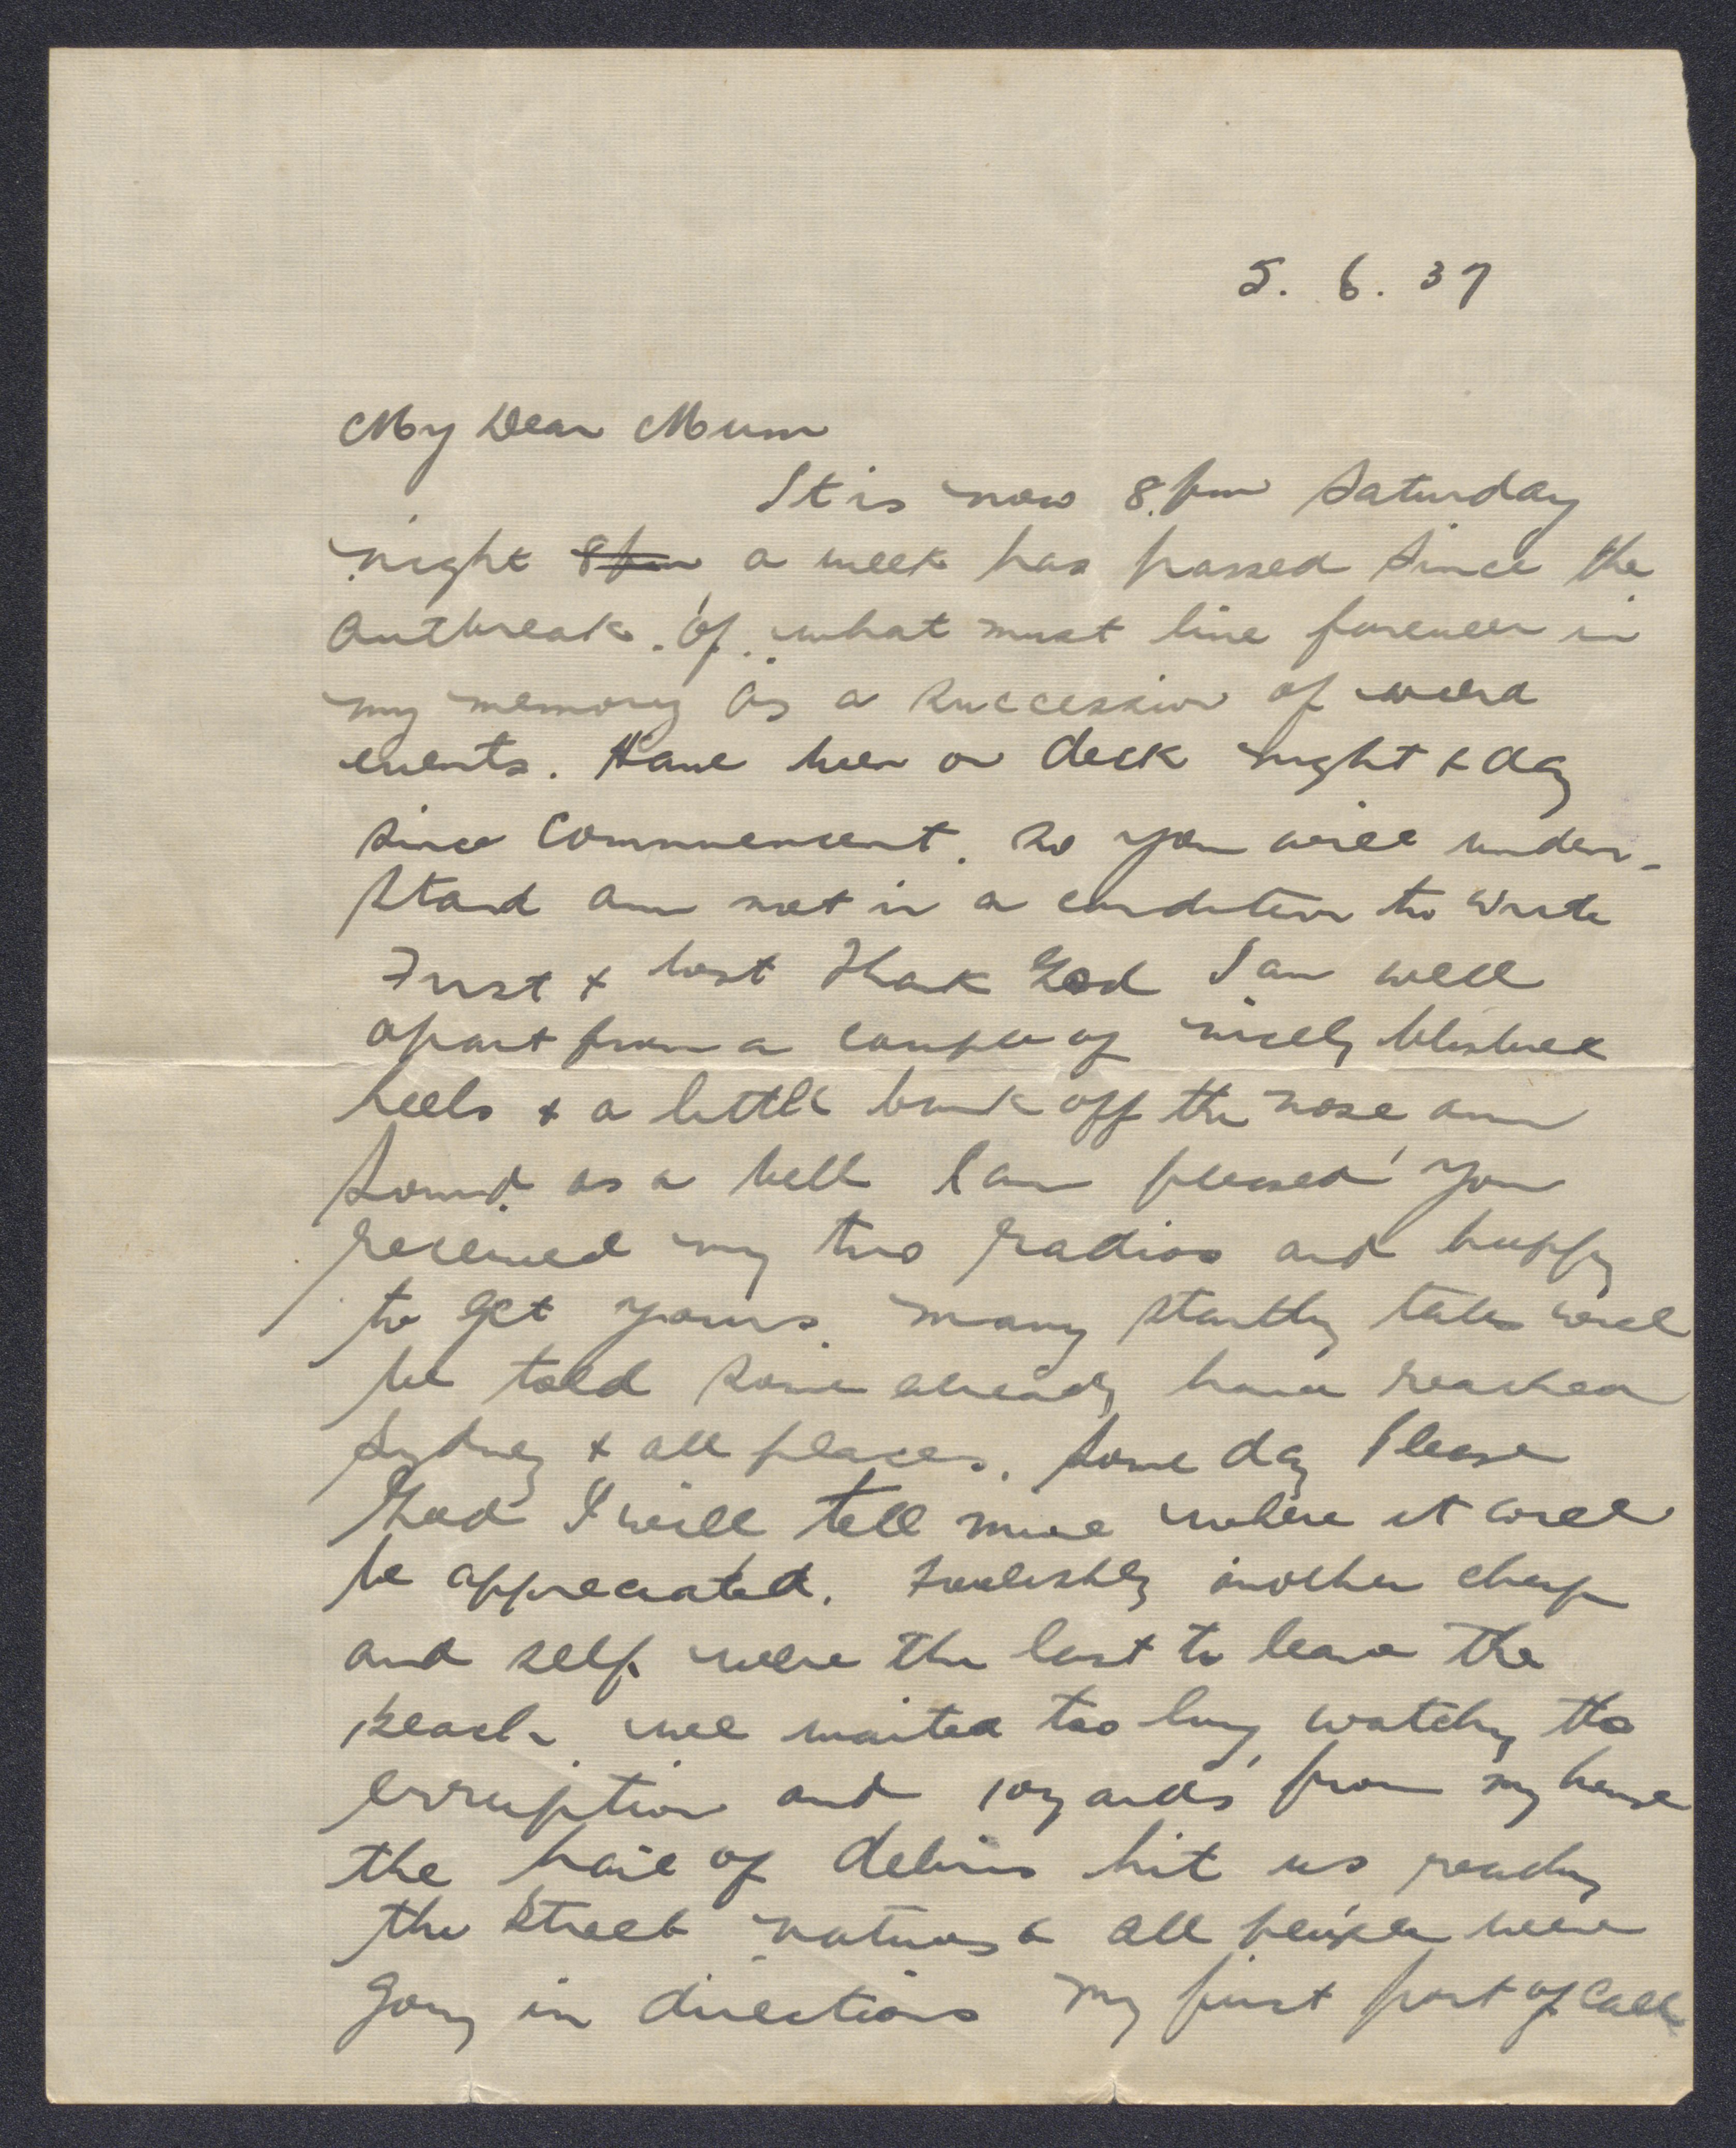 5. 6. 37
My Dear Mum
It is now 8.pm Saturday
night 8pm a week has passed since the
outbreak of what must live forever in
my memory as a succession of weird
events. Have been on deck night & day
since commencement. so you will under-
stand am not in a condition to write
First & last Thank God I am well
apart from a couple of nicely blistered
heels & a little bark off the nose am
sound as a bell I am pleased you
received my two radios and happy
to get yours. Many startling tales will
be told some already have reached
Sydney & all places. Some day Please
God I will tell mine where it will
be appreciated. Foolishly another chap
and self were the last to leave the
beach we waited too long watching the
erruption and 10 yards from my house
the hail of debris hit us reaching
the street natives & all people were
going in directions my first port of call